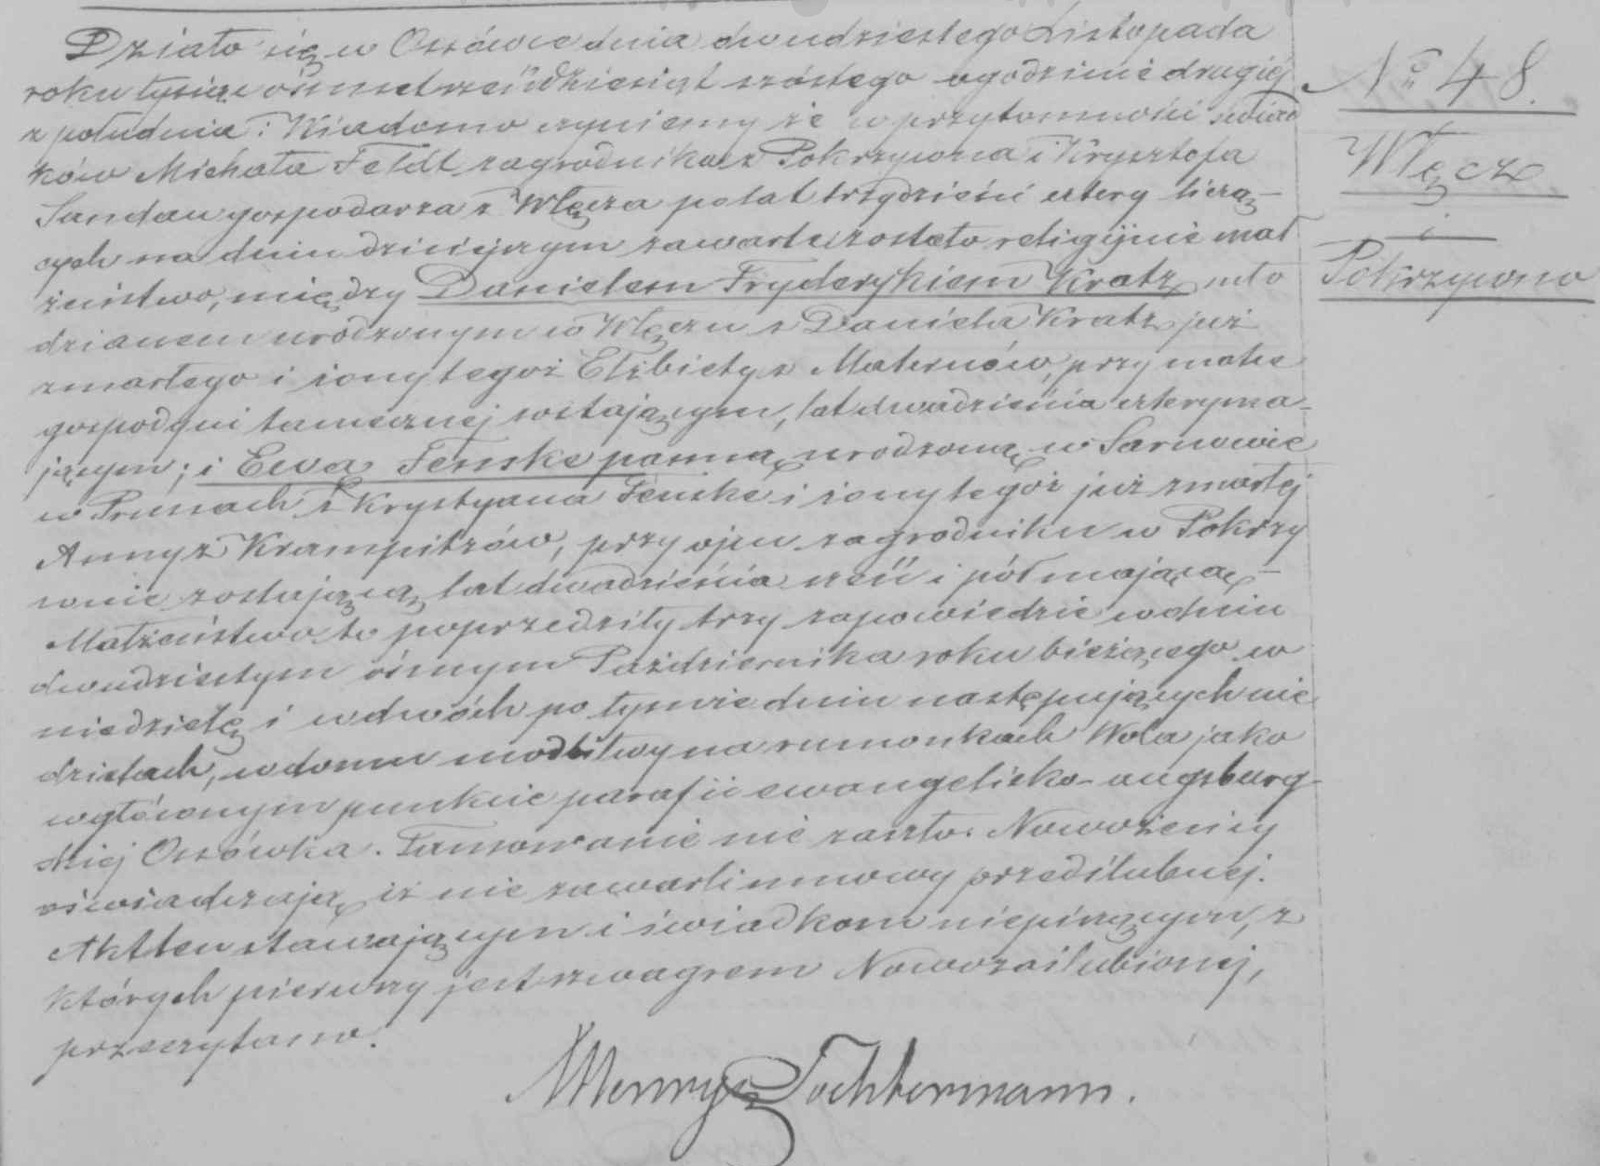 Działo się w Ossówce dnia dwudziestego Listopada
roku tysiąc ośmset sześćdziesiąt szóstego o godzinie drugiej
z południa. Wiadomo czyniemy że w przytomności świad
ków Michała Feldt zagrodnika z Pokrzywna i Krysztofa
Sandau gospodarza z Włęcza po lat trzydzieści cztery liczą-
cych na dniu dzisiejszym zawarte zostało religijnie mał
żeństwo, między Danielem Fryderykiem Kratz, mło
dzianem urodzonym w Włęczu z Daniela Kratz już
zmarłego i żony tegoż Elżbiety z Maternów, przy matce
gospodyni tamecznej zostającym, lat dwadzieścia cztery ma-
jącym; i Ewą Fenske panną, urodzoną w Sarnowie
w Prusach z Krystyana Fenske i żony tegoż już zmarłej
Anny z Krampitzów, przy ojcu zagrodniku w Pokrzy
wnie zostającą, lat dwadzieścia sześć i pół mającą.-
Małżeństwo to poprzedziły trzy zapowiedzie w dniu
dwudziestym ósmym Października roku bieżącego w
niedzielę i w dwóch po tymże dniu następujących nie
dzielach, w domu modlitwy na rumunkach Wola jako
w głównym punkcie parafii ewangelicko-augsburg-
skiej Ossówka. Tamowanie nie zaszło. Nowożeńcy
oświadczają, iż nie zawarli umowy przedślubnej.
Akt ten stawającym i świadkom niepiszącym, z
których pierwszy jest szwagrem Nowozaślubionej,
przeczytano.
Henryk Tochtermann.
No 48.
Włęcz
i
Pokrzywno